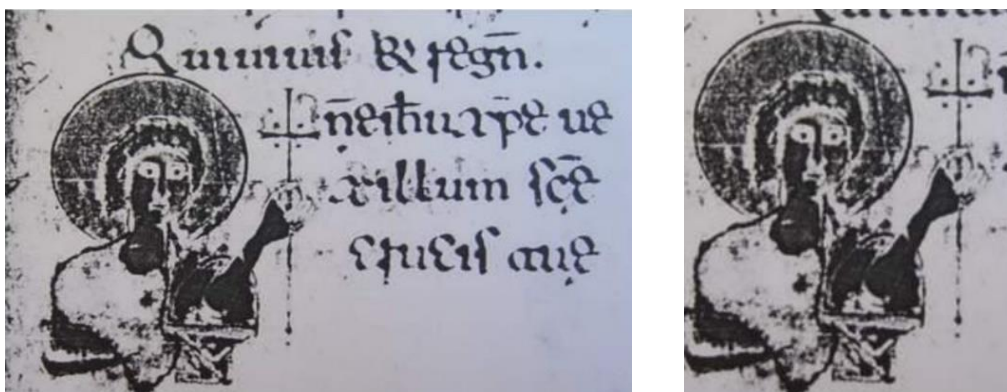 Qui uiuis & regn̄.
n̄e ih̄u xp̄e ue
xillum sc̄e
crucis que